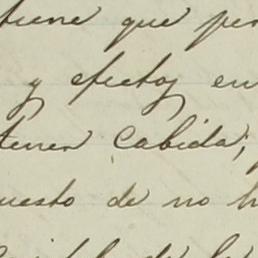 tiene que per
y efectos en
tener cabida;
uesto de no h